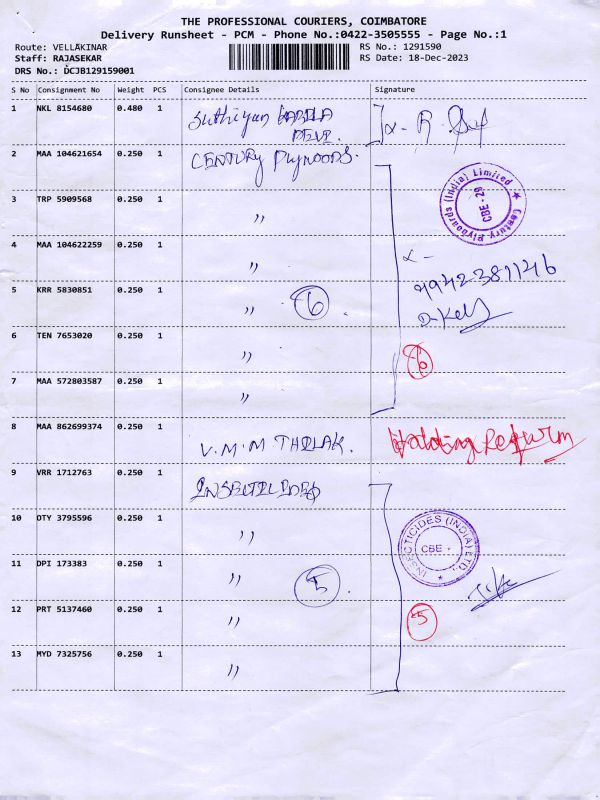 THE PROFESSIONAL COURIERS, COIMBATORE
Delivery Runsheet - PCM - Phone No.:0422-3505555 - Page No.:1
Route: VELLAKINAR
Staff: RAJASEKAR
DRS No.: DCJB129159001
RS No.: 1291590
RS Date: 18-Dec-2023
S No Consignment No Weight PCS Consignee Details Signature
1 NKL 8154680 0.480 1
2 MAA 104621654 0.250 1 CENTURY Plywoods.
Century Plyboards (India) Limited ★
CBE - 29
3 TRP 5909568 0.250 1 "
4 MAA 104622259 0.250 1 "
9942381146
5 KRR 5830851 0.250 1 " 6
6 TEN 7653020 0.250 1 "
6
7 MAA 572803587 0.250 1 "
8 MAA 862699374 0.250 1 V.M.M THILAK.
9 VRR 1712763 0.250 1
10 DTY 3795596 0.250 1 "
INSECTICIDES (INDIA) LTD. ★
CBE
11 DPI 173383 0.250 1 " 5
12 PRT 5137460 0.250 1 "
5
13 MYD 7325756 0.250 1 "